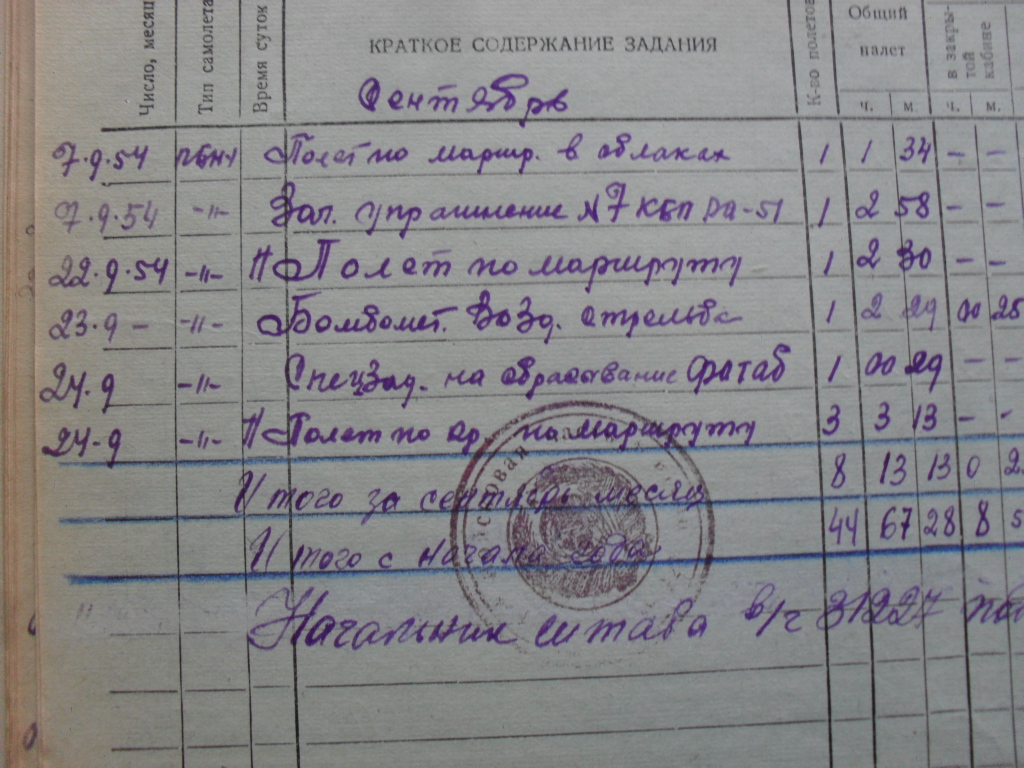 Число, месяц
Тип самолета
Время суток
КРАТКОЕ СОДЕРЖАНИЕ ЗАДАНИЯ
К-во полетов
Общий
налет
в закры-
той
кабине
ч. м. ч. м.
Сентябрь
7.9.54 Полет по маршр. в облаках 1 1 34 – –
7.9.54 -"- упражнение №7 КБП 1 2 58 – –
22.9.54 -"- Полет по маршруту 1 2 30 – –
23.9 – -"- Бомбомет. Возд. стрельба 1 2 29 00 25
24.9 -"- Спецзад. на сбрасывание фотаб 1 00 29 – –
24.9 -"- Полет по по маршруту 3 3 13 – -
Итого за сентябрь месяц 8 13 13 0 2
Итого с начала года 44 67 28 8 5
Начальник штаба в/ч